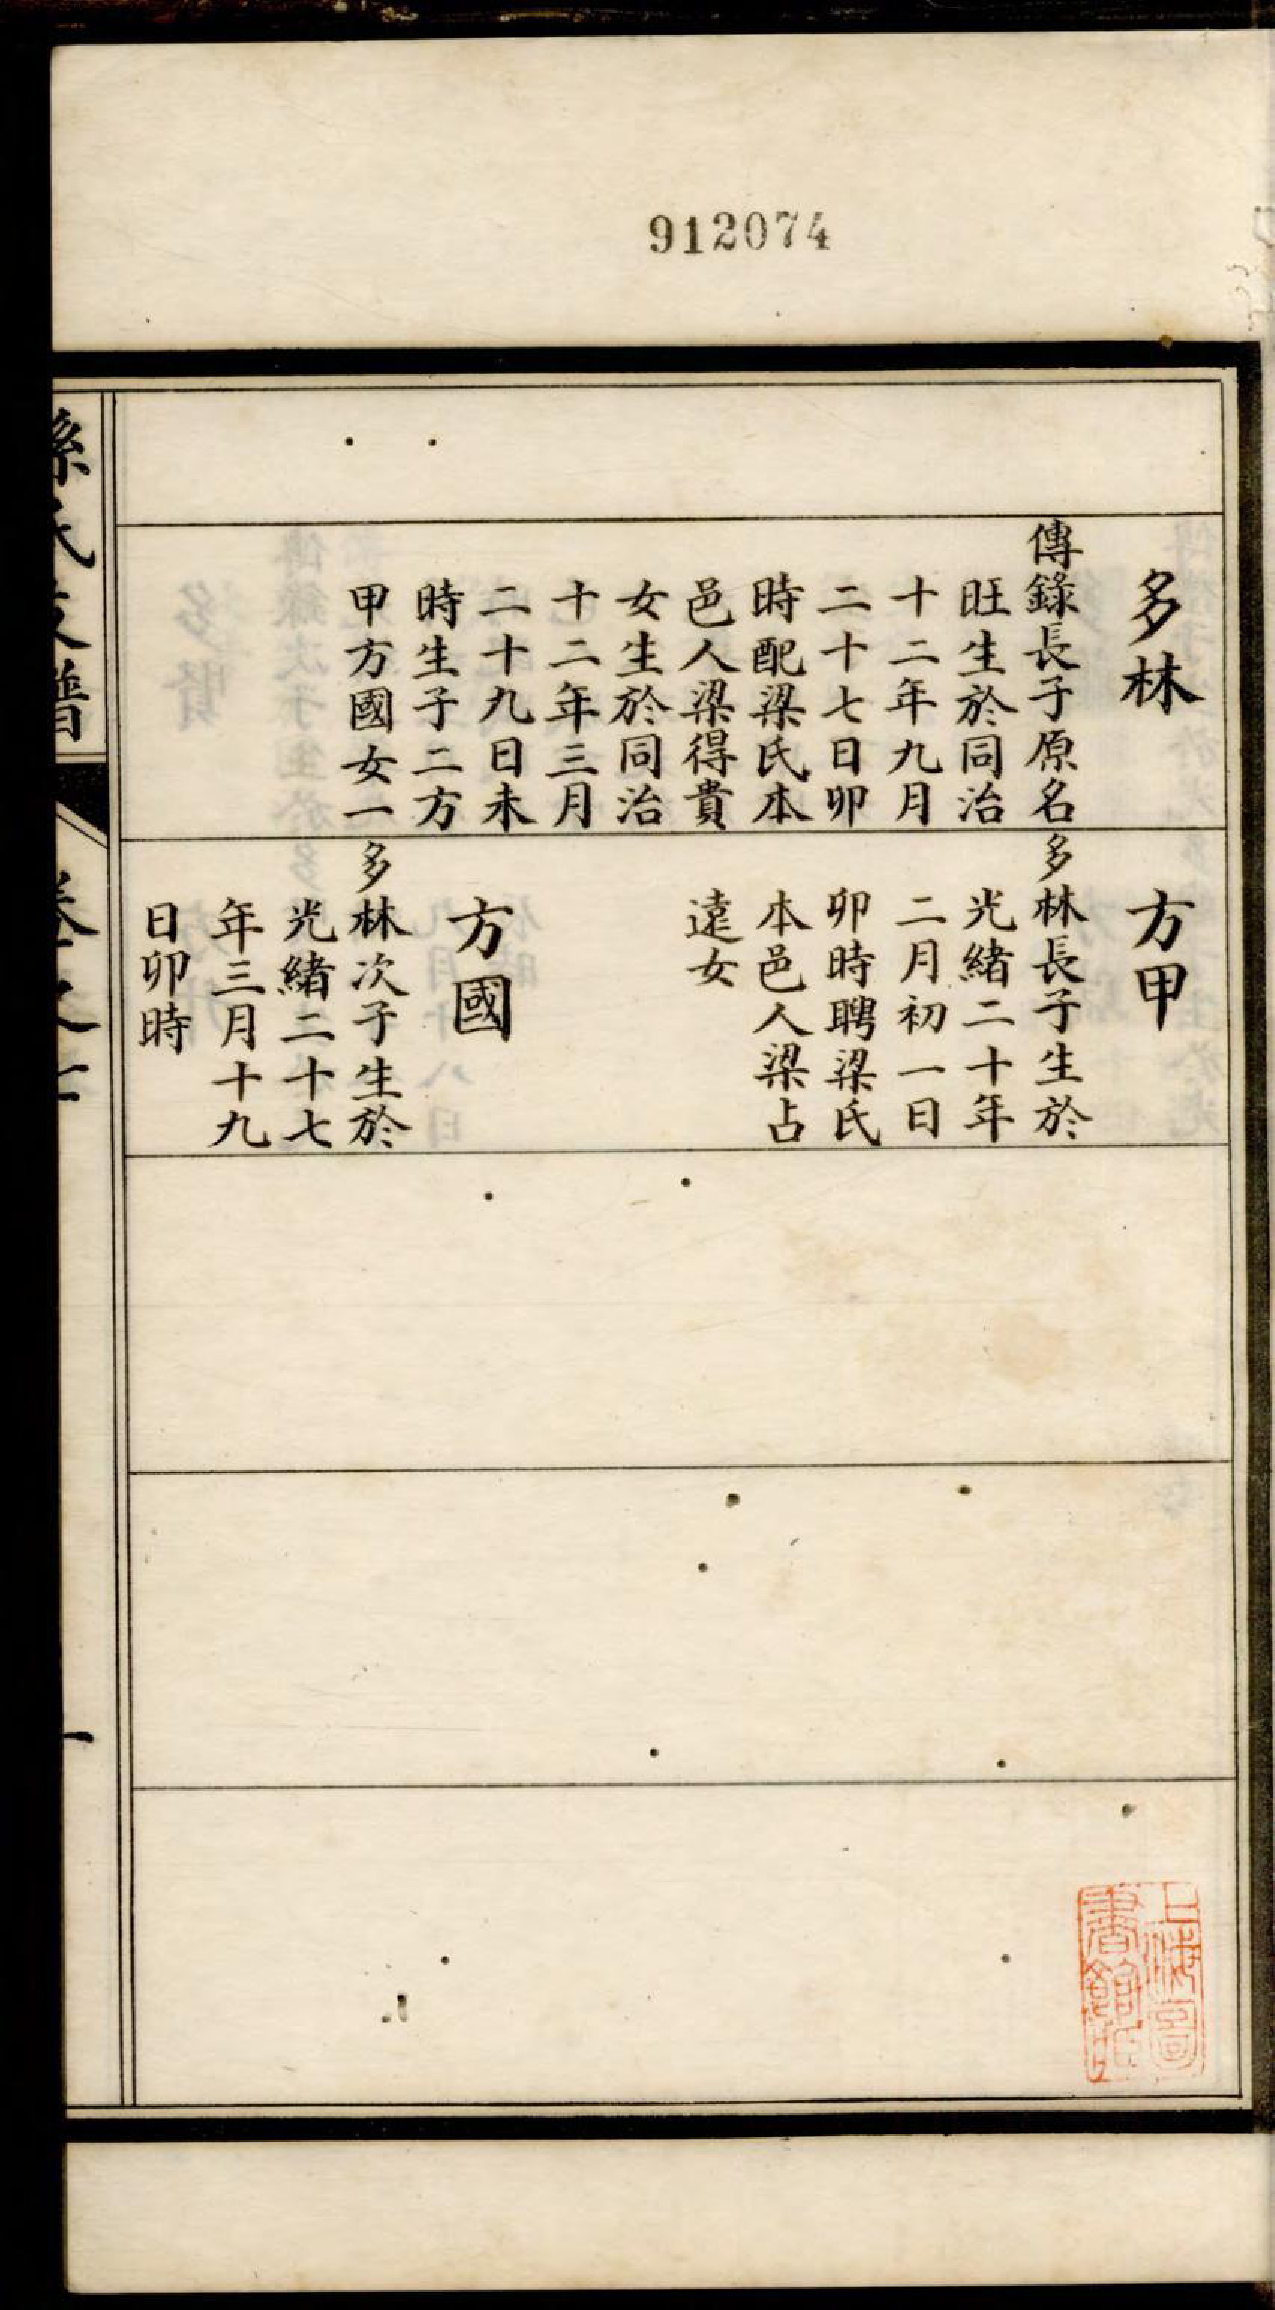 912074
多林
傳錄長子原名
旺生於同治
十二年九月
二十七日卯
時配梁氏本
邑人梁得貴
女生於同治
十二年三月
二十九日未
時生子二方
甲方國女一
方甲
多林長子生於
光緒二十年
二月初一日
卯時聘梁氏
本邑人梁占
遠女
方國
多林次子生於
光緒二十七
年三月十九
日卯時
孫氏支譜
卷之
一
上海圖
書館藏